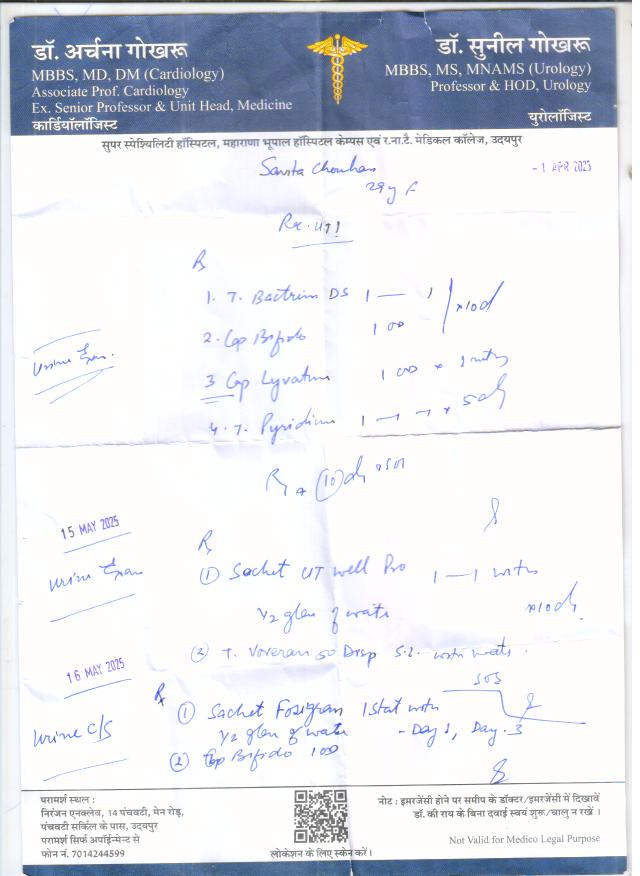 डॉ. अर्चना गोखरू
MBBS, MD, DM (Cardiology)
Associate Prof. Cardiology
Ex. Senior Professor & Unit Head, Medicine
कार्डियॉलॉजिस्ट
डॉ. सुनील गोखरू
MBBS, MS, MNAMS (Urology)
Professor & HOD, Urology
यूरोलॉजिस्ट
सुपर स्पेश्यिलिटी हॉस्पिटल, महाराणा भूपाल हॉस्पिटल केम्पस एवं र.ना.टै. मेडिकल कॉलेज, उदयपुर
- 1 APR 2025
29 y F
1. T. Bactrim DS 1 — 1 x 10d
2. Cap Bifido 1 00
Urine Exam.
3 Cap 1 00 x
4. T. Pyridium 1 - 1 - 1 x 5d
15 MAY 2025
Urine Exam
① Sachet UT well Pro 1 — 1 with
1/2 glass of water x 10d
② T. Voveran 50 Disp S.L. with water.
SOS
16 MAY 2025
① Sachet 1 Stat with
1/2 glass of water - Day 1, Day 3
Urine C/S
② Cap Bifido 100
परामर्श स्थल :
निरंजन एनक्लेव, 14 पंचवटी, मेन रोड़,
पंचवटी सर्किल के पास, उदयपुर
परामर्श सिर्फ अपॉईन्मेन्ट से
फोन नं. 7014244599
लोकेशन के लिए स्केन करें।
नोट : इमरजेंसी होने पर समीप के डॉक्टर/इमरजेंसी में दिखावें
डॉ. की राय के बिना दवाई स्वयं शुरू/चालु न रखें।
Not Valid for Medico Legal Purpose